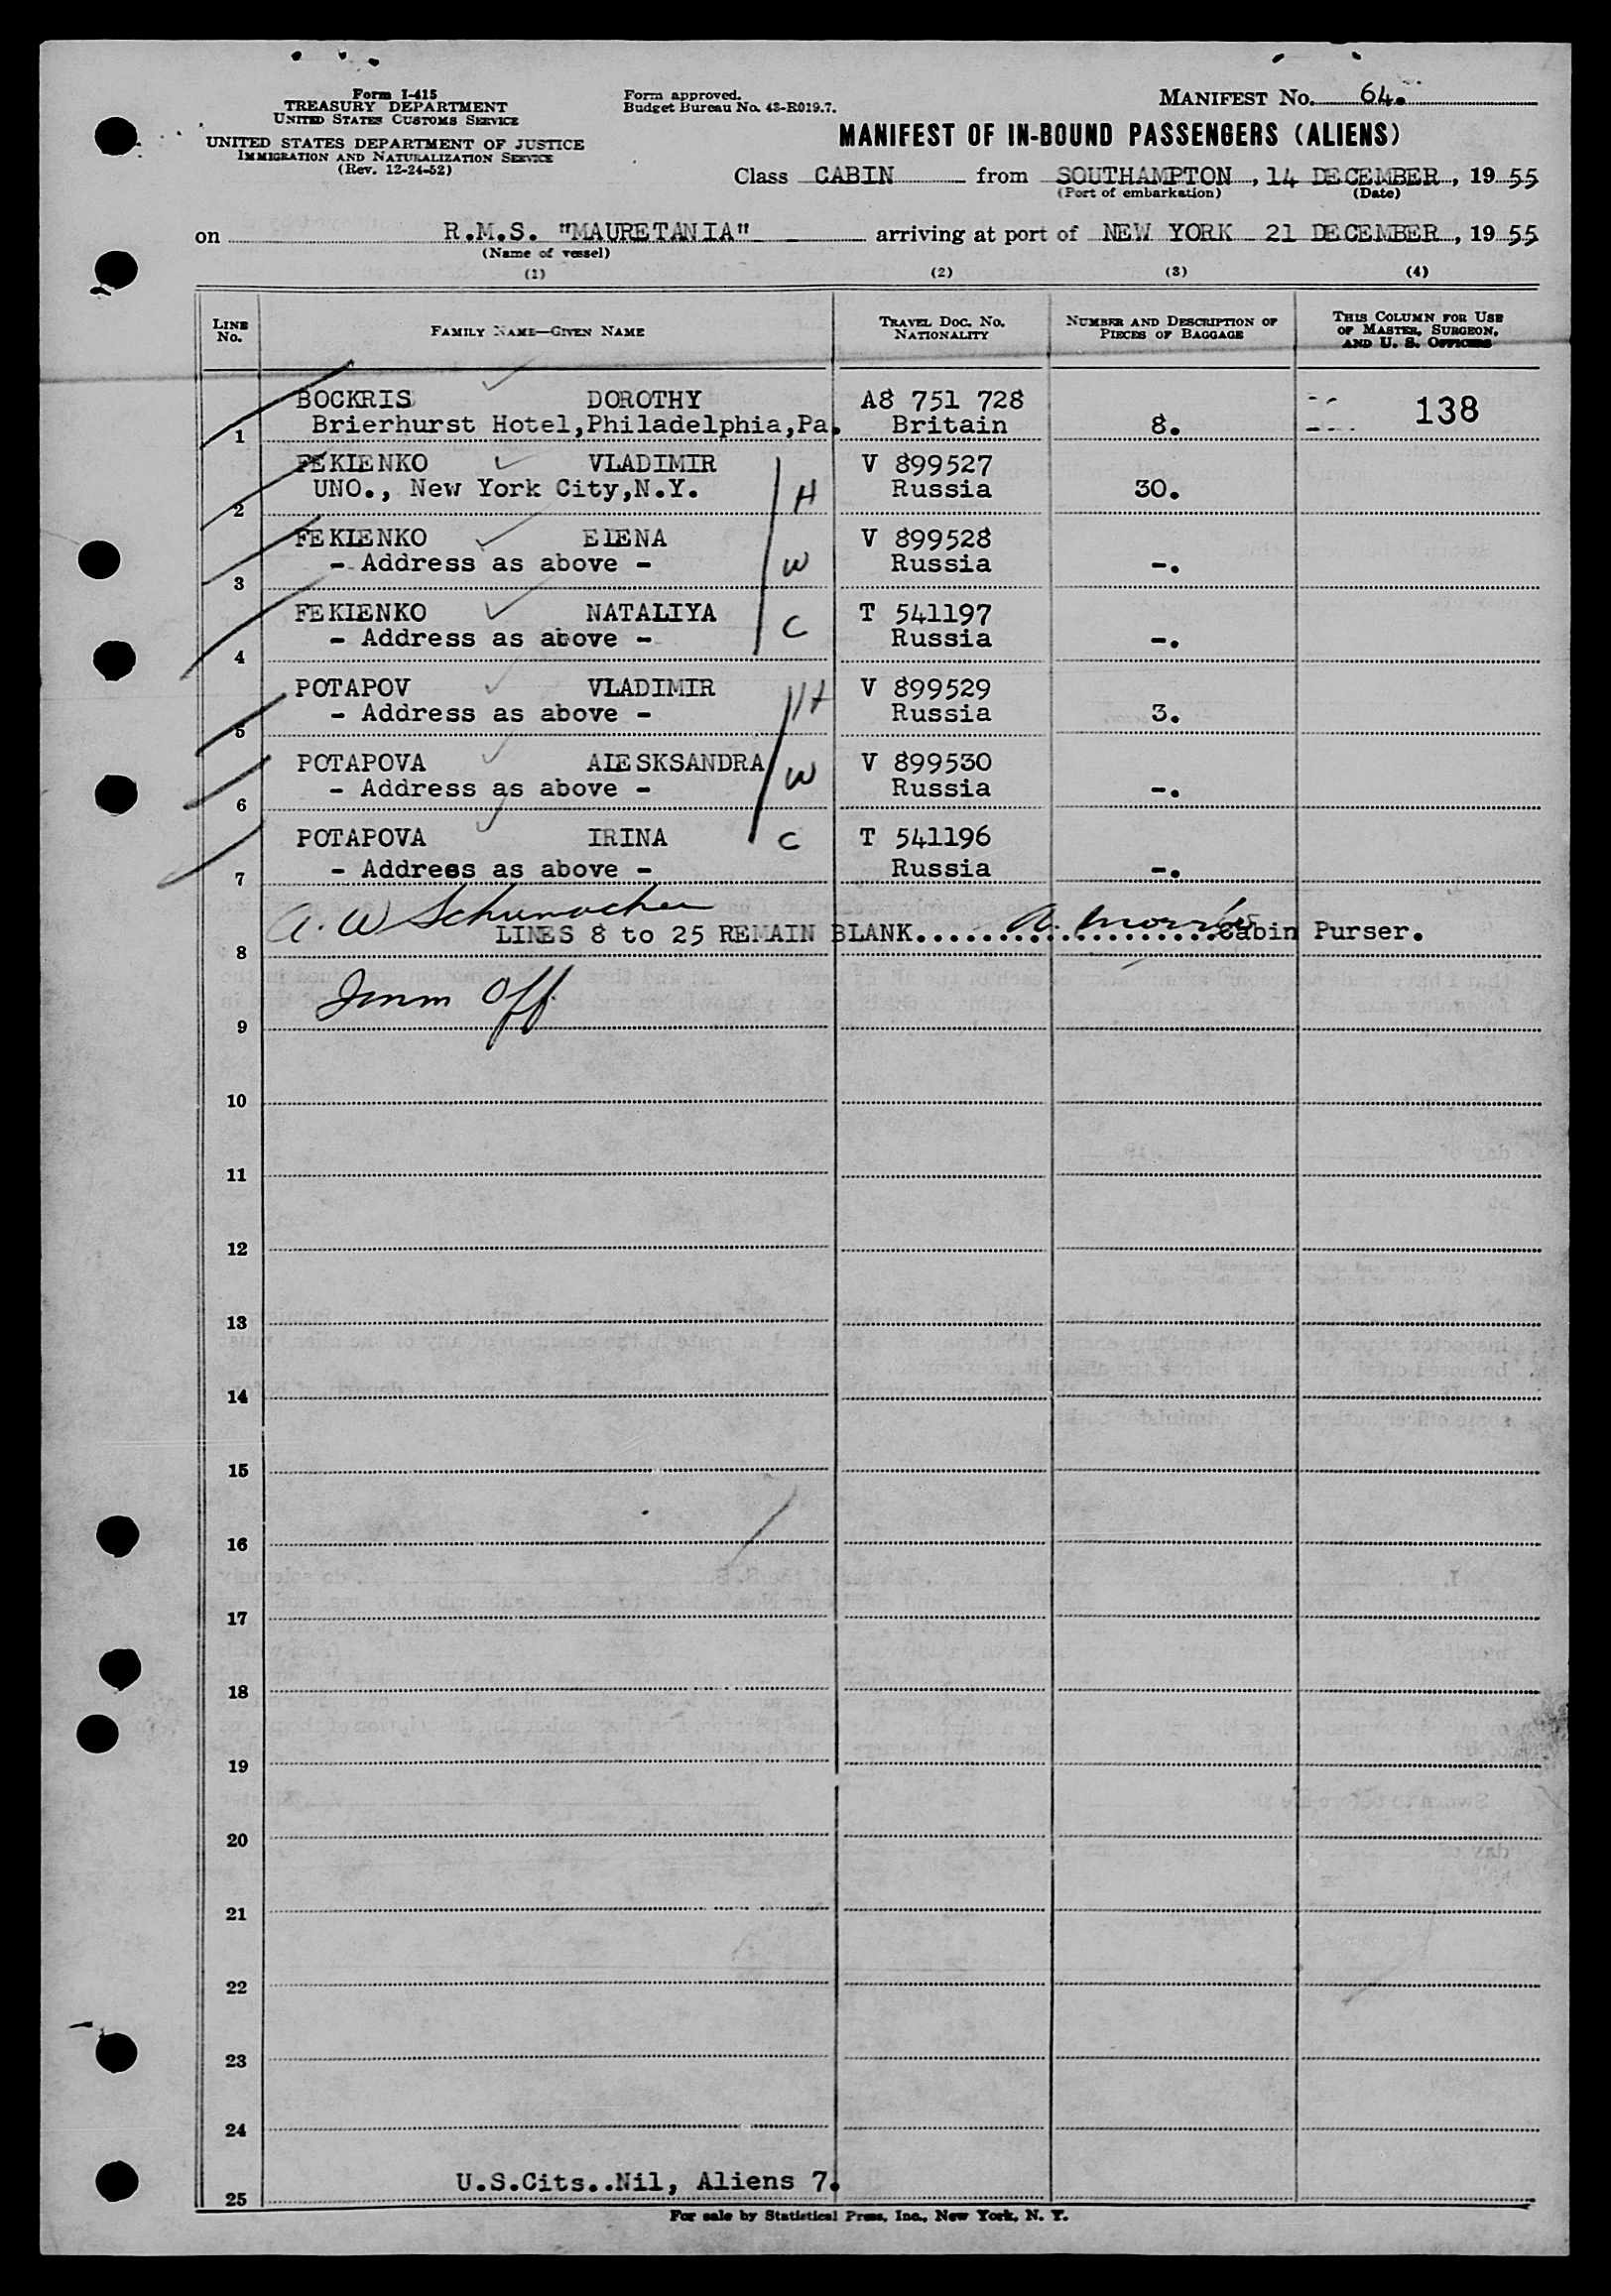 Form I-415
TREASURY DEPARTMENT
UNITED STATES CUSTOMS SERVICE
UNITED STATES DEPARTMENT OF JUSTICE
IMMIGRATION AND NATURALIZATION SERVICE
(Rev. 12-24-52)
Form approved.
Budget Bureau No. 43-R019.7.
MANIFEST NO. 64.
MANIFEST OF IN-BOUND PASSENGERS (ALIENS)
Class CABIN from SOUTHAMPTON, 14 DECEMBER, 1955
(Port of embarkation) (Date)
on R.M.S. "MAURETANIA" arriving at port of NEW YORK 21 DECEMBER, 1955
(Name of vessel)
(1) (2) (3) (4)
LINE NO. FAMILY NAME—GIVEN NAME TRAVEL DOC. NO. NATIONALITY NUMBER AND DESCRIPTION OF PIECES OF BAGGAGE THIS COLUMN FOR USE OF MASTER, SURGEON, AND U. S. OFFICERS
BOCKRIS DOROTHY A8 751 728 138
1 Brierhurst Hotel,Philadelphia,Pa. Britain 8.
FEKIENKO VLADIMIR V 899527
2 UNO., New York City,N.Y. H Russia 30.
FEKIENKO ELENA V 899528
3 - Address as above - W Russia -.
FEKIENKO NATALIYA T 541197
4 - Address as above - C Russia -.
POTAPOV VLADIMIR H V 899529
5 - Address as above - Russia 3.
POTAPOVA ALESKSANDRA V 899530
6 - Address as above - W Russia -.
POTAPOVA IRINA C T 541196
7 - Address as above - Russia -.
A. W Schumacher
8 LINES 8 to 25 REMAIN BLANK................... Cabin Purser.
9 Imm Off.
10
11
12
13
14
15
16
17
18
19
20
21
22
23
24
25 U.S.Cits..Nil, Aliens 7.
For sale by Statistical Press, Inc., New York, N. Y.